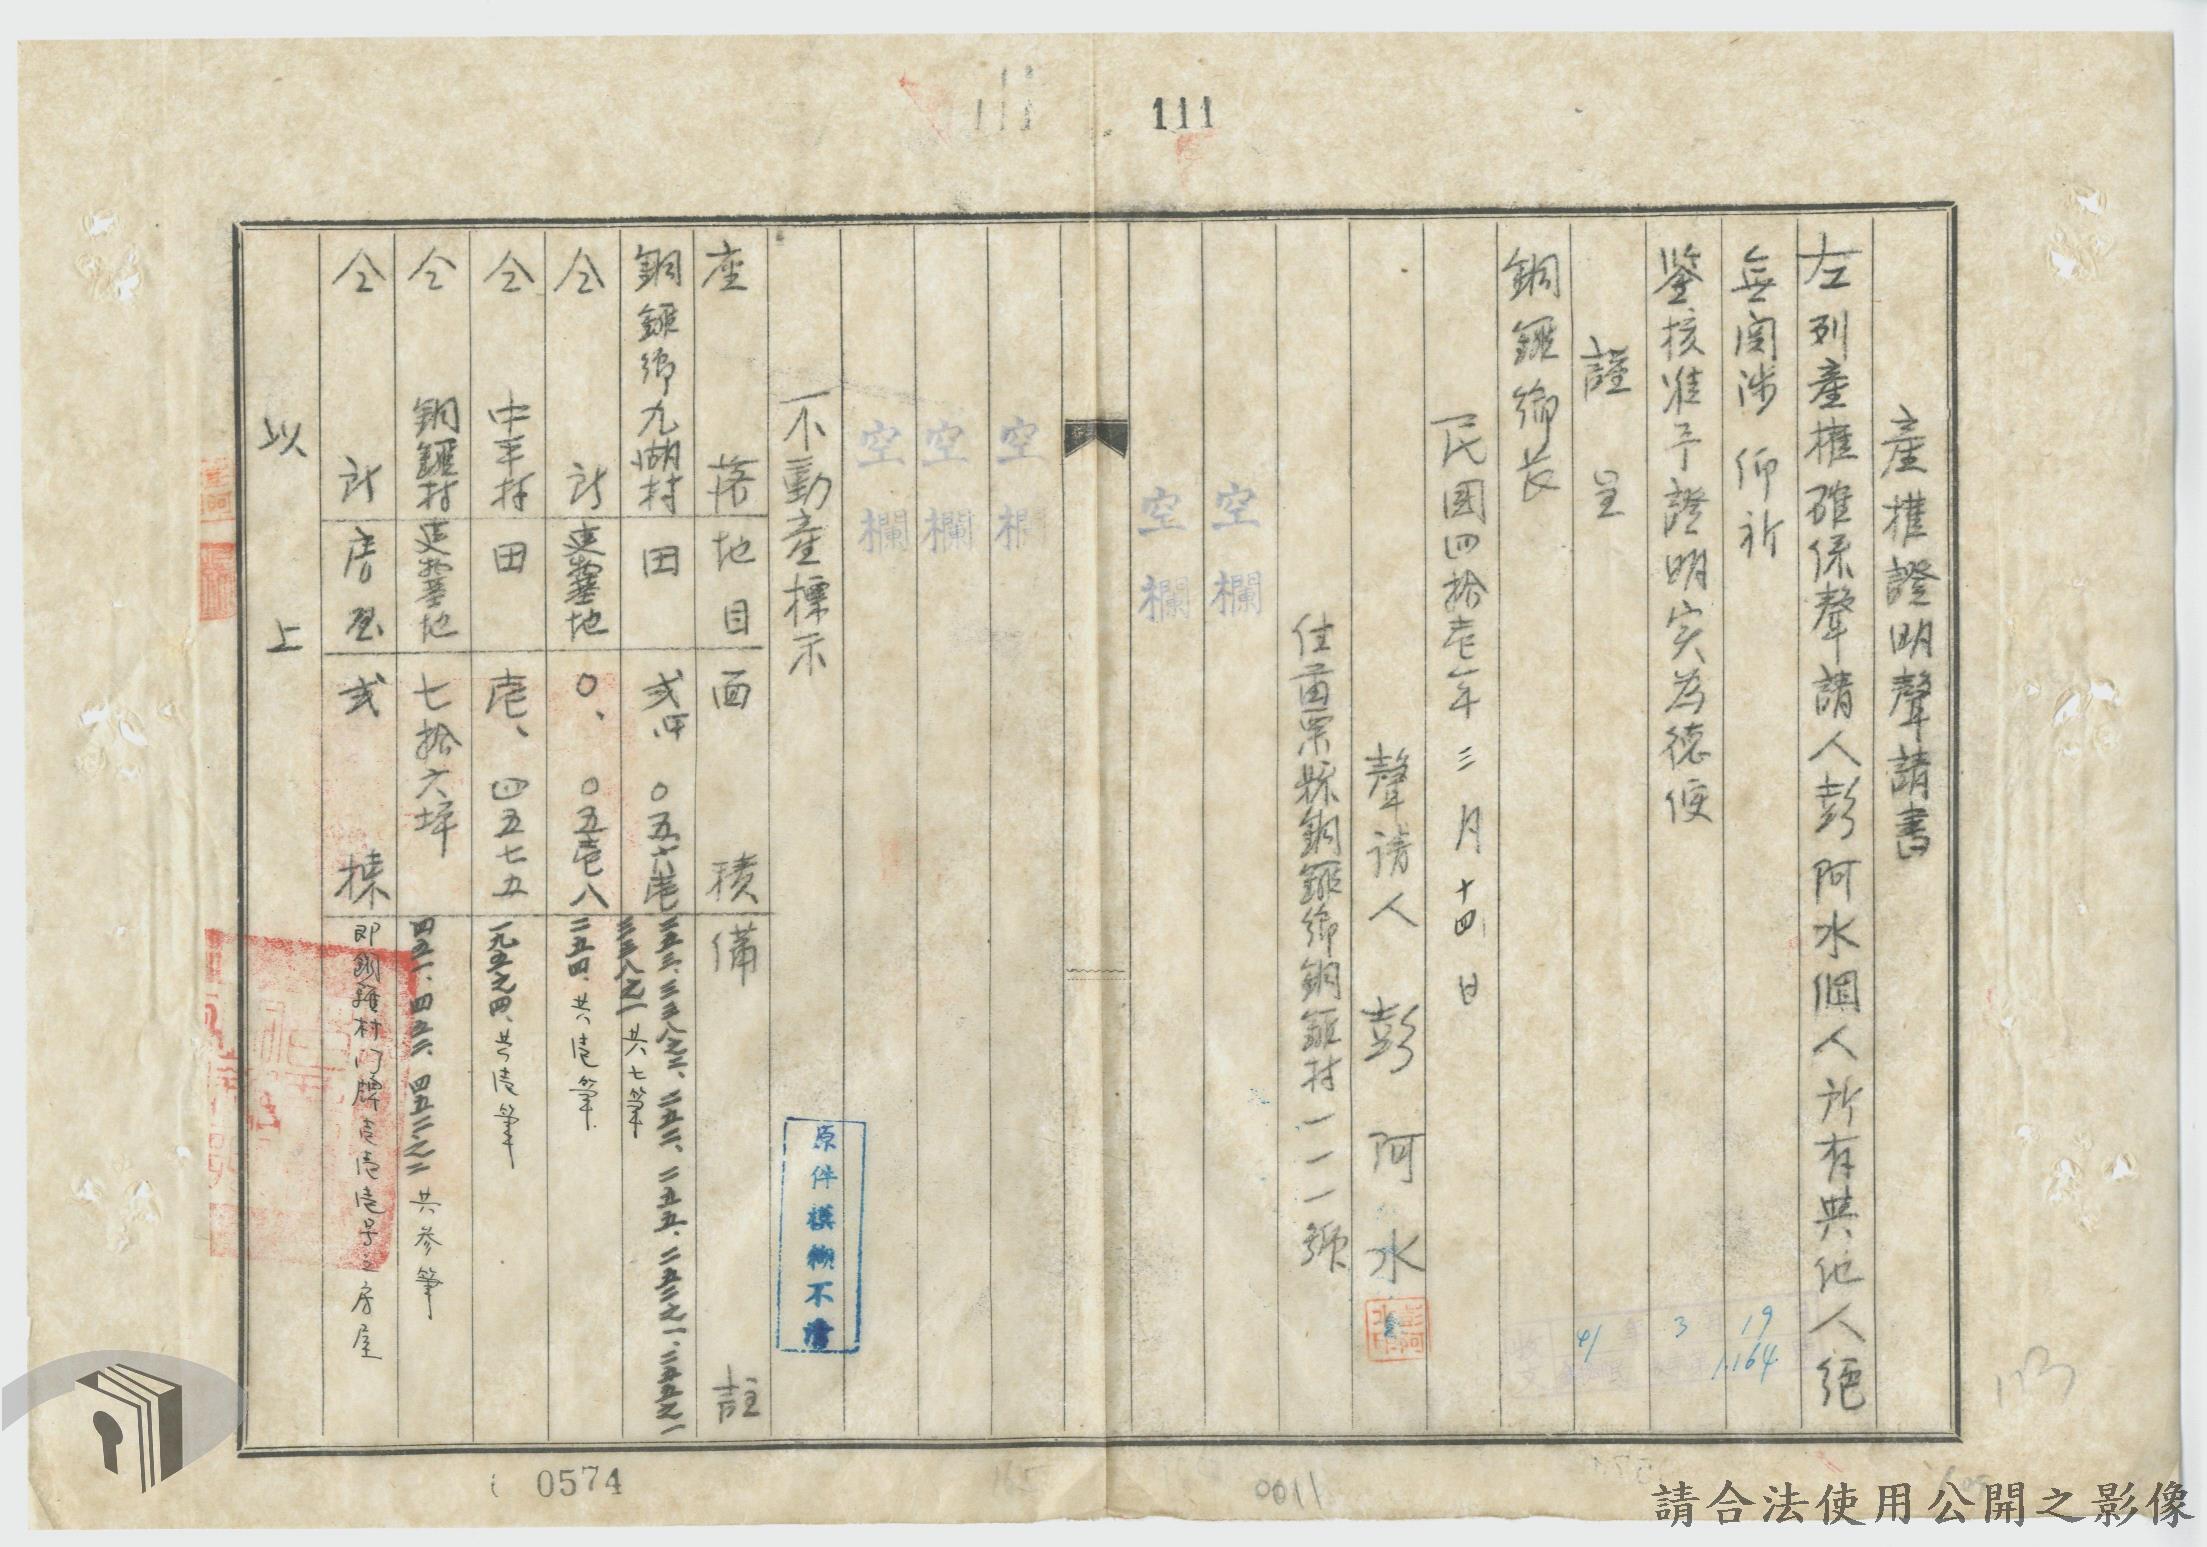 111
產權證明聲請書
左列產權確係聲請人彭阿水個人所有與他人絕
無関涉仰祈
鑒核准予證明实為德便
謹呈
銅鑼鄉長
民國四拾壱年三月十四日
聲請人 彭阿水
住苗栗縣銅鑼鄉銅鑼村一一一號
空欄
空欄
空欄
空欄
空欄
不動產標示
座落 地目 面積 備註
銅鑼鄉九湖村 田 弍甲、〇五六壱 二五三、三三八之二、二五二、二五五、二五二之一、二五五之一
三三八之一 共七筆
仝所 建物墓地 〇、〇五壱八 二五四、共壱筆
仝 中平村 田 壱、四五七五 一九五之四、共壱筆
仝 銅鑼村 建物墓地 七拾六坪 四五一、四五二、四五二之二 共参筆
仝所 店屋 弍棟 即銅鑼村门牌壱壱壱号之房屋
以上
原件模糊不清
收文 41年3月19
1164
彭阿水印
0574
0011
113
請合法使用公開之影像